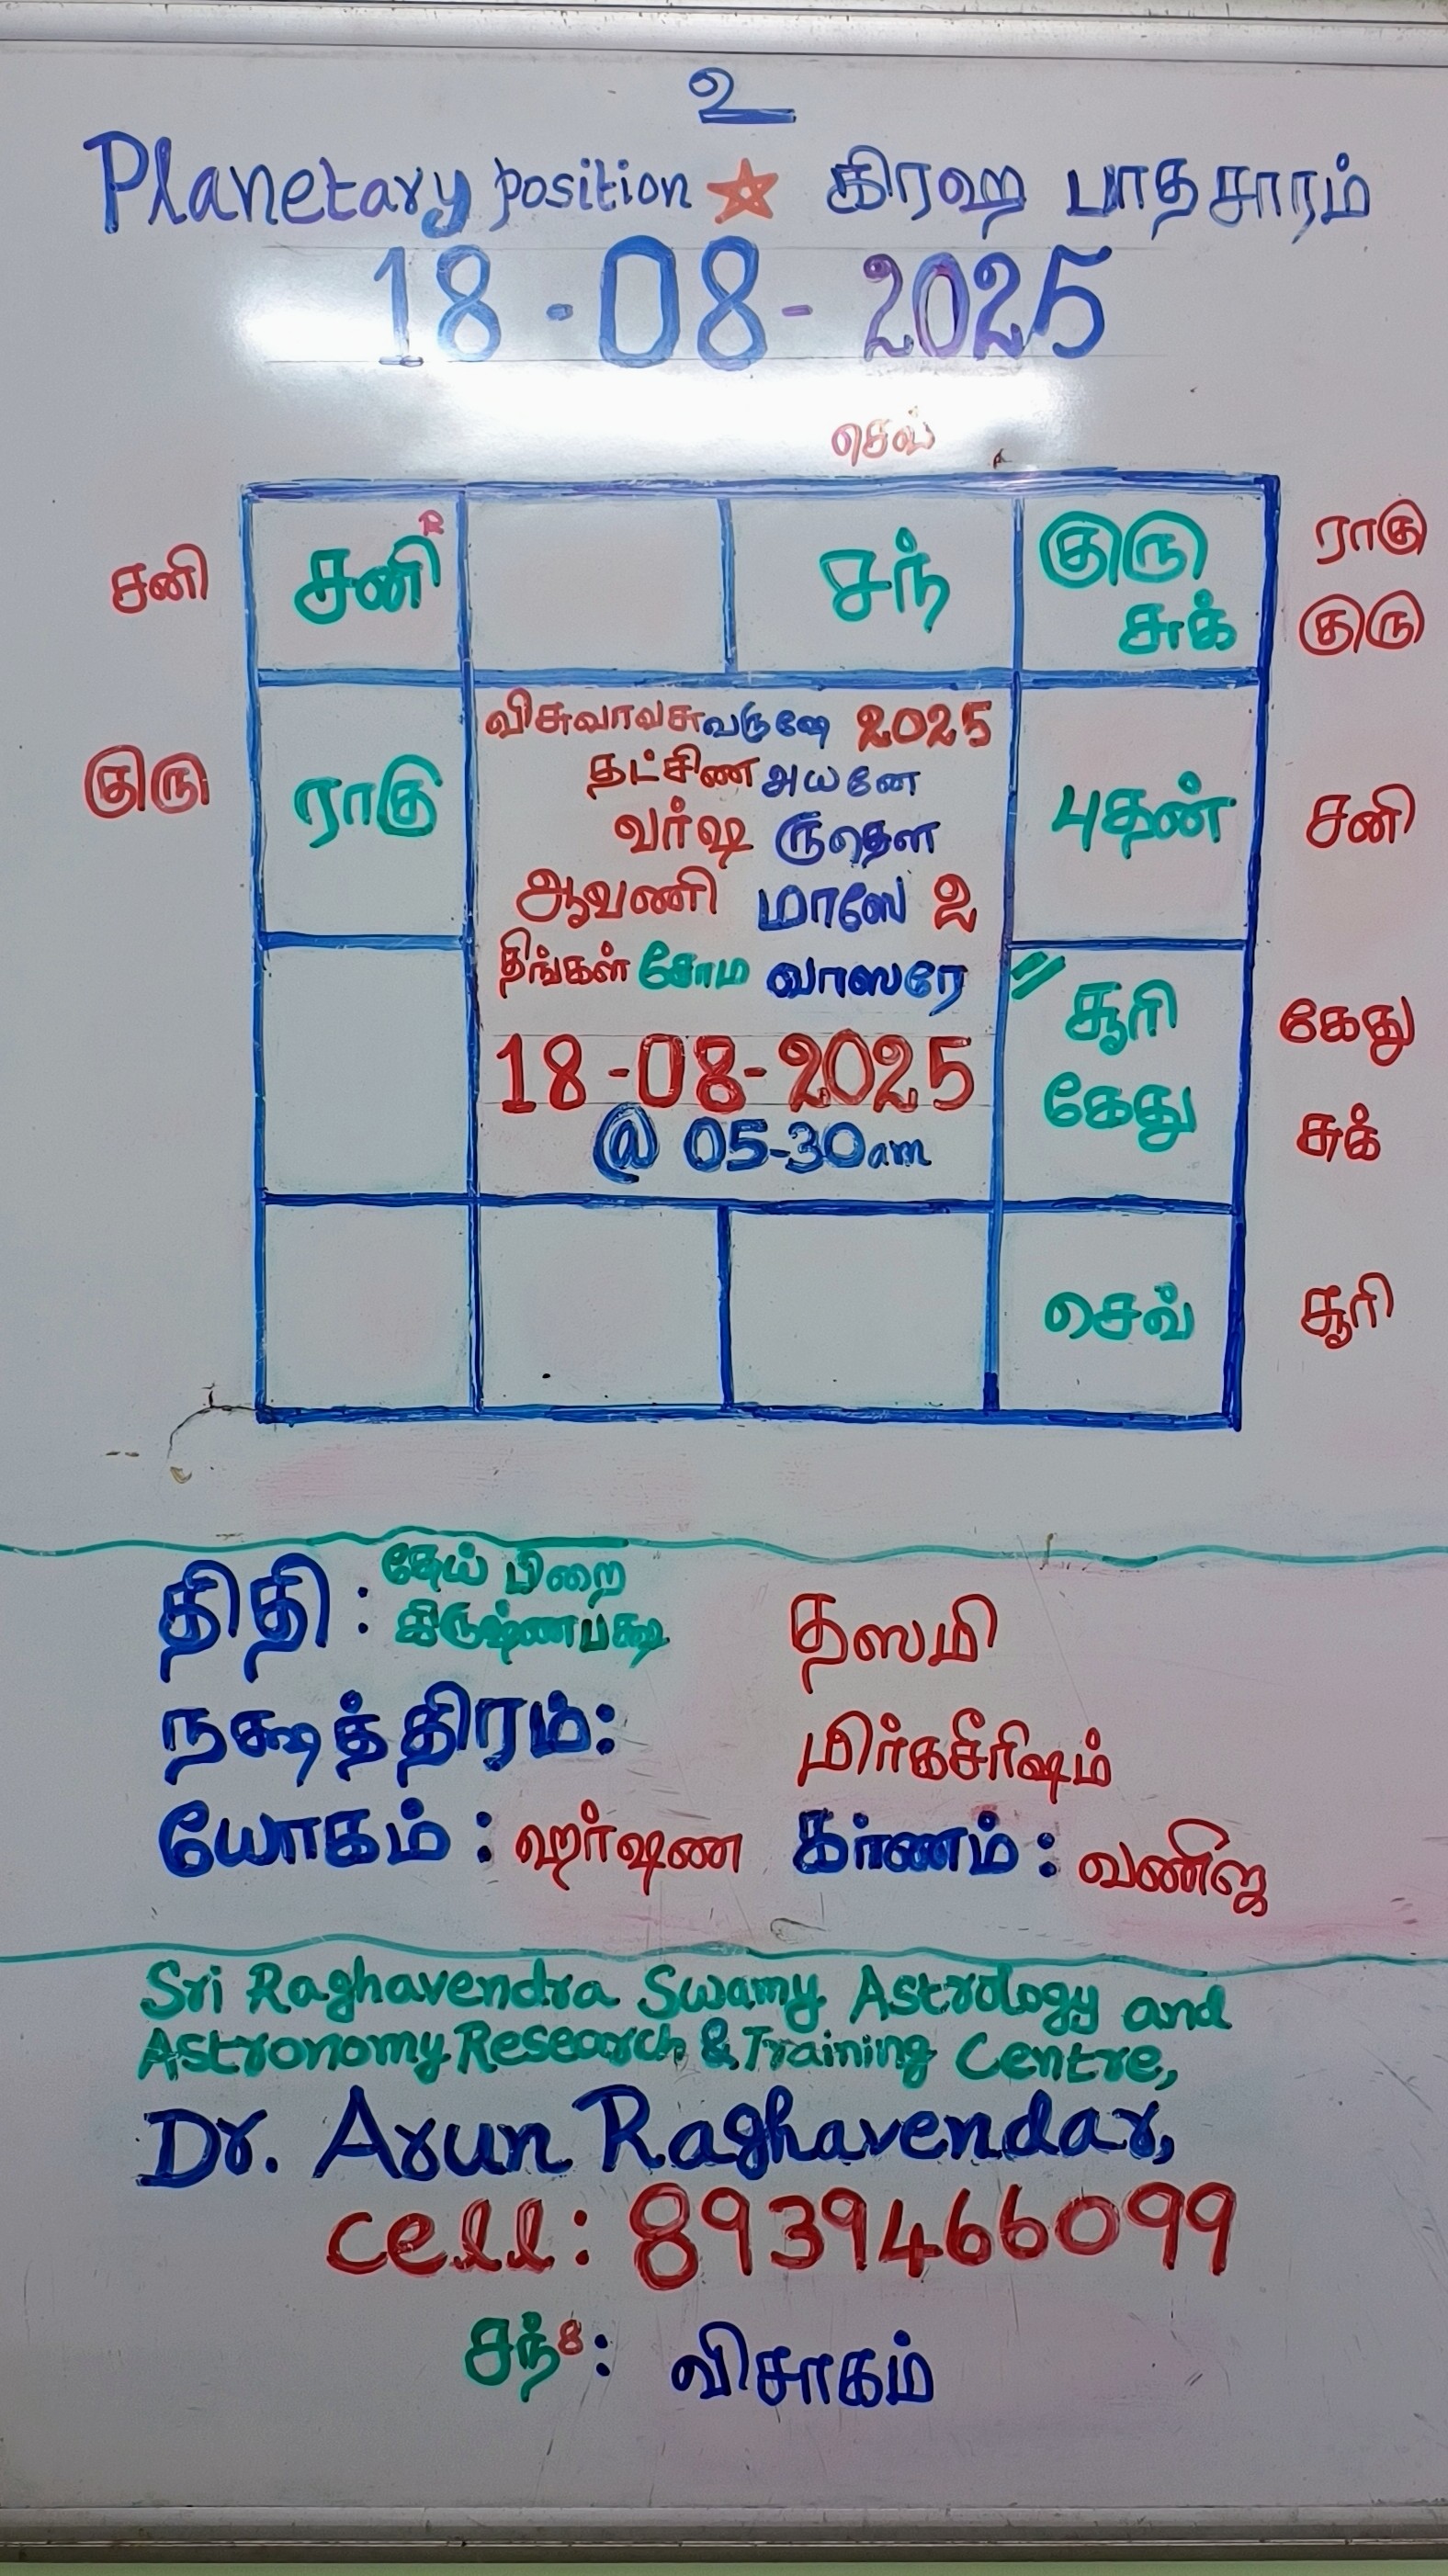 உ
Planetary position ☆ கிரஹ பாதசாரம்
18-08-2025
செவ்
சனி சனி R சந் குரு ராகு
சுக் குரு
விசுவாவசுவருஷே 2025
தட்சிண அயனே
குரு ராகு வர்ஷ ருதௌ புதன் சனி
ஆவணி மாஸே 2
திங்கள் சோம வாஸரே
சூரி கேது
18-08-2025
@ 05-30am
கேது சுக்
செவ் சூரி
திதி : தேய் பிறை
கிருஷ்ணபக்ஷ தஸமி
நக்ஷத்திரம்: மிர்கசீரிஷம்
யோகம் : ஹர்ஷண கர்ணம் : வணிஜ
Sri Raghavendra Swamy Astrology and
Astronomy Research & Training Centre,
Dr. Arun Raghavendar,
cell: 8939466099
சந்8: விசாகம்